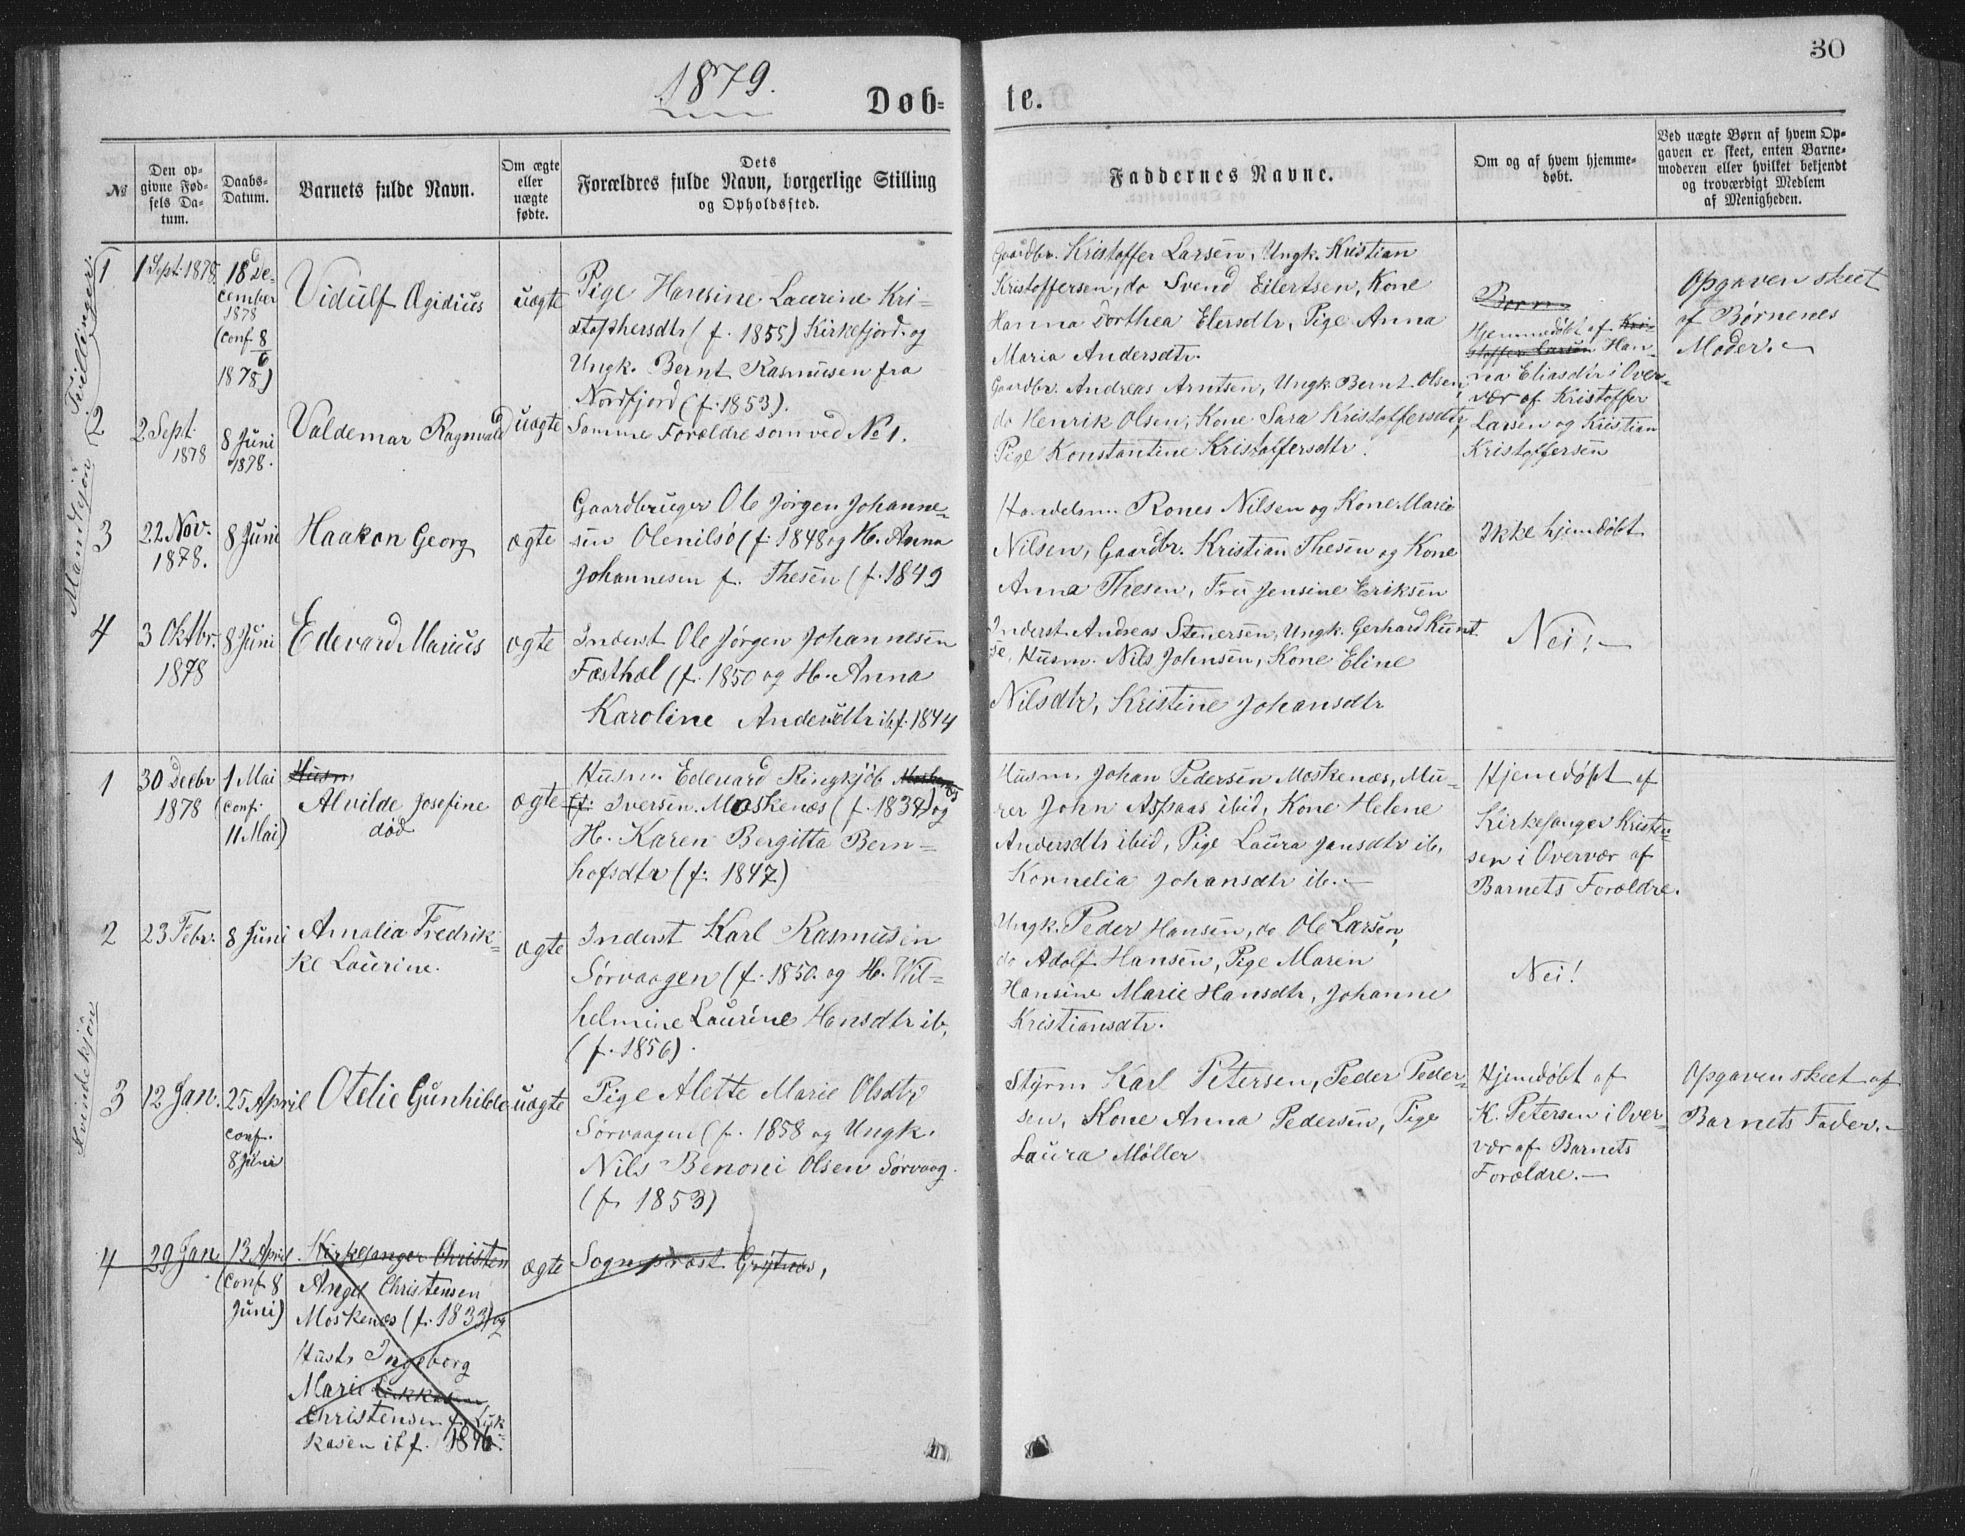 30
1879.
Døb-
te.
№
Den op-
givne Fød-
sels Da-
tum.
Daabs-
Datum.
Barnets fulde Navn.
Om ægte
eller
uægte
fødte.
Dets
Forældres fulde Navn, borgerlige Stilling
og Opholdssted.
Faddernes Navne.
Om og af hvem hjemme-
døbt.
Ved uægte Børn af hvem Op-
gaven er skeet, enten Barne-
moderen eller hvilket bekjendt
og troværdigt Medlem
af Menigheden.
Mandkjøn
Tvillinger.
1
1 Sept. 1878
18 De-
cember
1878
(conf. 8
6
1878)
Vidulf Ægidius
uægte
Pige Hansine Laurine Kri-
stophersdtr (f. 1855) Kirkefjord og
Ungk. Bernt Rasmusen fra
Nordfjord (f. 1853).
Gaardbr. Kristoffer Larsen, Ungk. Kristian
Kristoffersen, do Svend Eilertsen, Kone
Hanna Dorthea Elersdtr, Pige Anna
Maria Andersdtr.
Hjemmedøbt af Kri-
stoffer Larsen Han-
na Eliasdtr i Over-
vær af Kristoffer
Larsen og Kristian
Kristoffersen
Opgaven skeet
af Børnenes
Moder.
2
2 Sept.
1878
8 Juni
1878.
Valdemar Ragnvald
uægte
Samme Forældre som ved No 1.
Gaardbr. Andreas Arntsen, Ungk. Bernt Olsen,
do Henrik Olsen, Kone Sara Kristoffersdtr,
Pige Konstantine Kristoffersdtr.
3
22 Nov.
1878.
8 Juni
Haakon Georg
ægte
Gaardbruger Ole Jørgen Johanne-
sen Olenilsø (f. 1848 og H. Anna
Johannesen f. Thesen (f. 1849
Handelsm. Rones Nilsen og Kone Marie
Nilsen, Gaardbr. Kristian Thesen og Kone
Anna Thesen, Fru Jensine Eriksen
Ikke hjemdøbt
4
3 Oktbr.
1878
8 Juni
Edevard Marius
ægte
Inderst Ole Jørgen Johannesen
Fæsthæl (f. 1850 og H. Anna
Karoline Andersdtr ib. f. 1844
Inderst Andreas Stenersen, Ungk. Gerhard Kunt
se, Husm. Nils Johnsen, Kone Eline
Nilsdtr, Kristine Johansdtr
Nei!
Kvindekjøn
1
30 Decbr
1878
1 Mai
(conf.
11 Mai)
Husm
Alvilde Josefine
død
ægte
Husm. Edevard Ringkjøb
Iversen Moskenæs (f. 1834) og
H. Karen Bergitta Bern-
hofsdtr (f. 1847)
Husm. Johan Pedersen Moskenæs, Mu-
rer John Aspaas ibid, Kone Helene
Andersdtr ibid, Pige Laura Jansdtr ib,
Kornelia Johansdtr ib.
Hjemdøpt af
Kirkesanger Kristen-
sen i Overvær af
Barnets Forældre.
2
23 Febr.
8 Juni
Amalia Fredrik-
ke Laurine.
ægte
Inderst Karl Rasmusen
Sørvaagen (f. 1850. og H. Wil-
helmine Laurine Hansdtr ib,
(f. 1856).
Ungk. Peder Hansen, do Ole Larsen,
do Adolf Hansen, Pige Maren
Hansine Marie Hansdtr, Johanne
Kristiansdtr.
Nei!
3
12 Jan.
25 April
conf.
8 Juni
Otelie Gunhilde
uægte
Pige Alette Marie Olsdtr
Sørvaagen (f. 1858 og Ungk.
Nils Benoni Olsen Sørvaag.
(f. 1853)
Styrm Karl Petersen, Peder Peder-
sen, Kone Anna Pedersen, Pige
Laura Møller
Hjemdøbt af
K. Petersen i Over-
vær af Barnets
Forældre.
Opgaven skeet af
Barnets Fader.
4
29 Jan
13 April
(conf. 8
Juni)
Kirkesanger Christen
Angel Christensen
Moskenæs (f. 1833) og
Hustr Ingeborg
Marie
Christensen f. Luk-
kasen ib f. 1846.
ægte
Sogneprest Grytnæs,